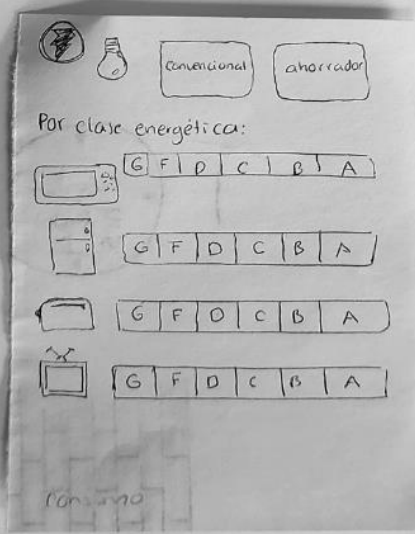 Convencional
ahorrador
Por clase energética:
G F D C B A
G F D C B A
G F D C B A
G F D C B A
Consumo